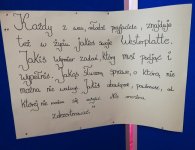 „Każdy z was, młodzi przyjaciele, znajduje
też w życiu jakieś swoje Westerplatte.
Jakiś wymiar zadań, który musi podjąć i
wypełnić. Jakąś słuszną sprawę, o którą nie
można nie walczyć. Jakiś obowiązek, powinność, od
której nie można się uchylić. Nie można
zdezerterować."